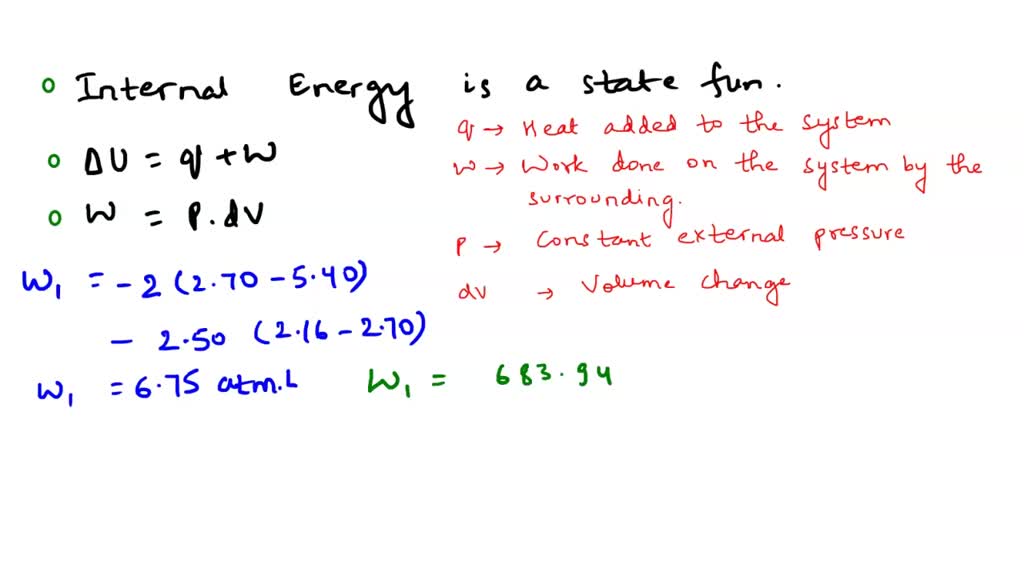 Internal Energy is a state fun.
q → Heat added to the system
ΔU = q + W
W → Work done on the system by the
surrounding.
W = P.dV
P → Constant external pressure
W₁ = -2 (2.70 - 5.40)
dV → Volume change
- 2.50 (2.16 - 2.70)
W₁ = 6.75 atm.L W₁ = 683.94